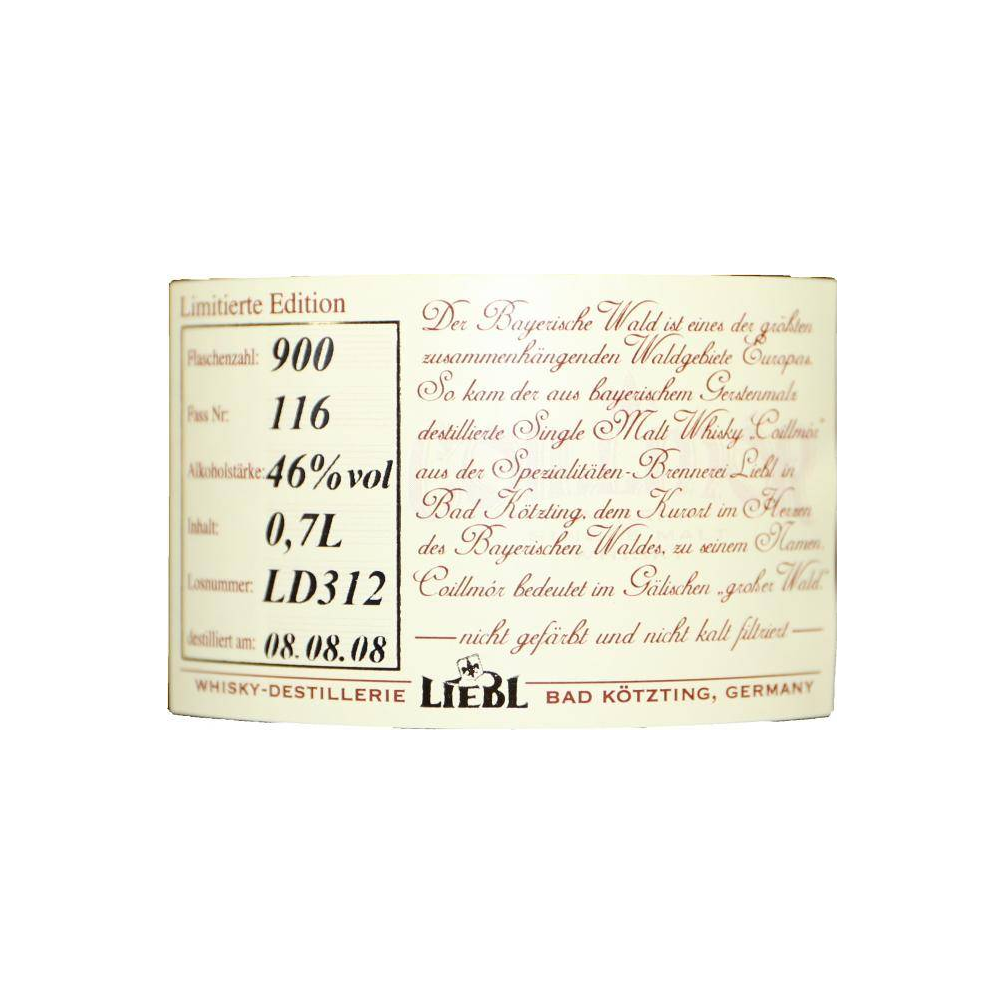 Limitierte Edition
Flaschenzahl: 900
Fass Nr: 116
Alkoholstärke: 46% vol
Inhalt: 0,7L
Losnummer: LD312
destilliert am: 08.08.08
Der Bayerische Wald ist eines der größten
zusammenhängenden Waldgebiete Europas.
So kam der aus bayerischem Gerstenmalz
destillierte Single Malt Whisky „Coillmór"
aus der Spezialitäten-Brennerei Liebl in
Bad Kötzting, dem Kurort im Herzen
des Bayerischen Waldes, zu seinem Namen.
Coillmór bedeutet im Gälischen „großer Wald".
nicht gefärbt und nicht kalt filtriert
WHISKY-DESTILLERIE LIEBL BAD KÖTZTING, GERMANY